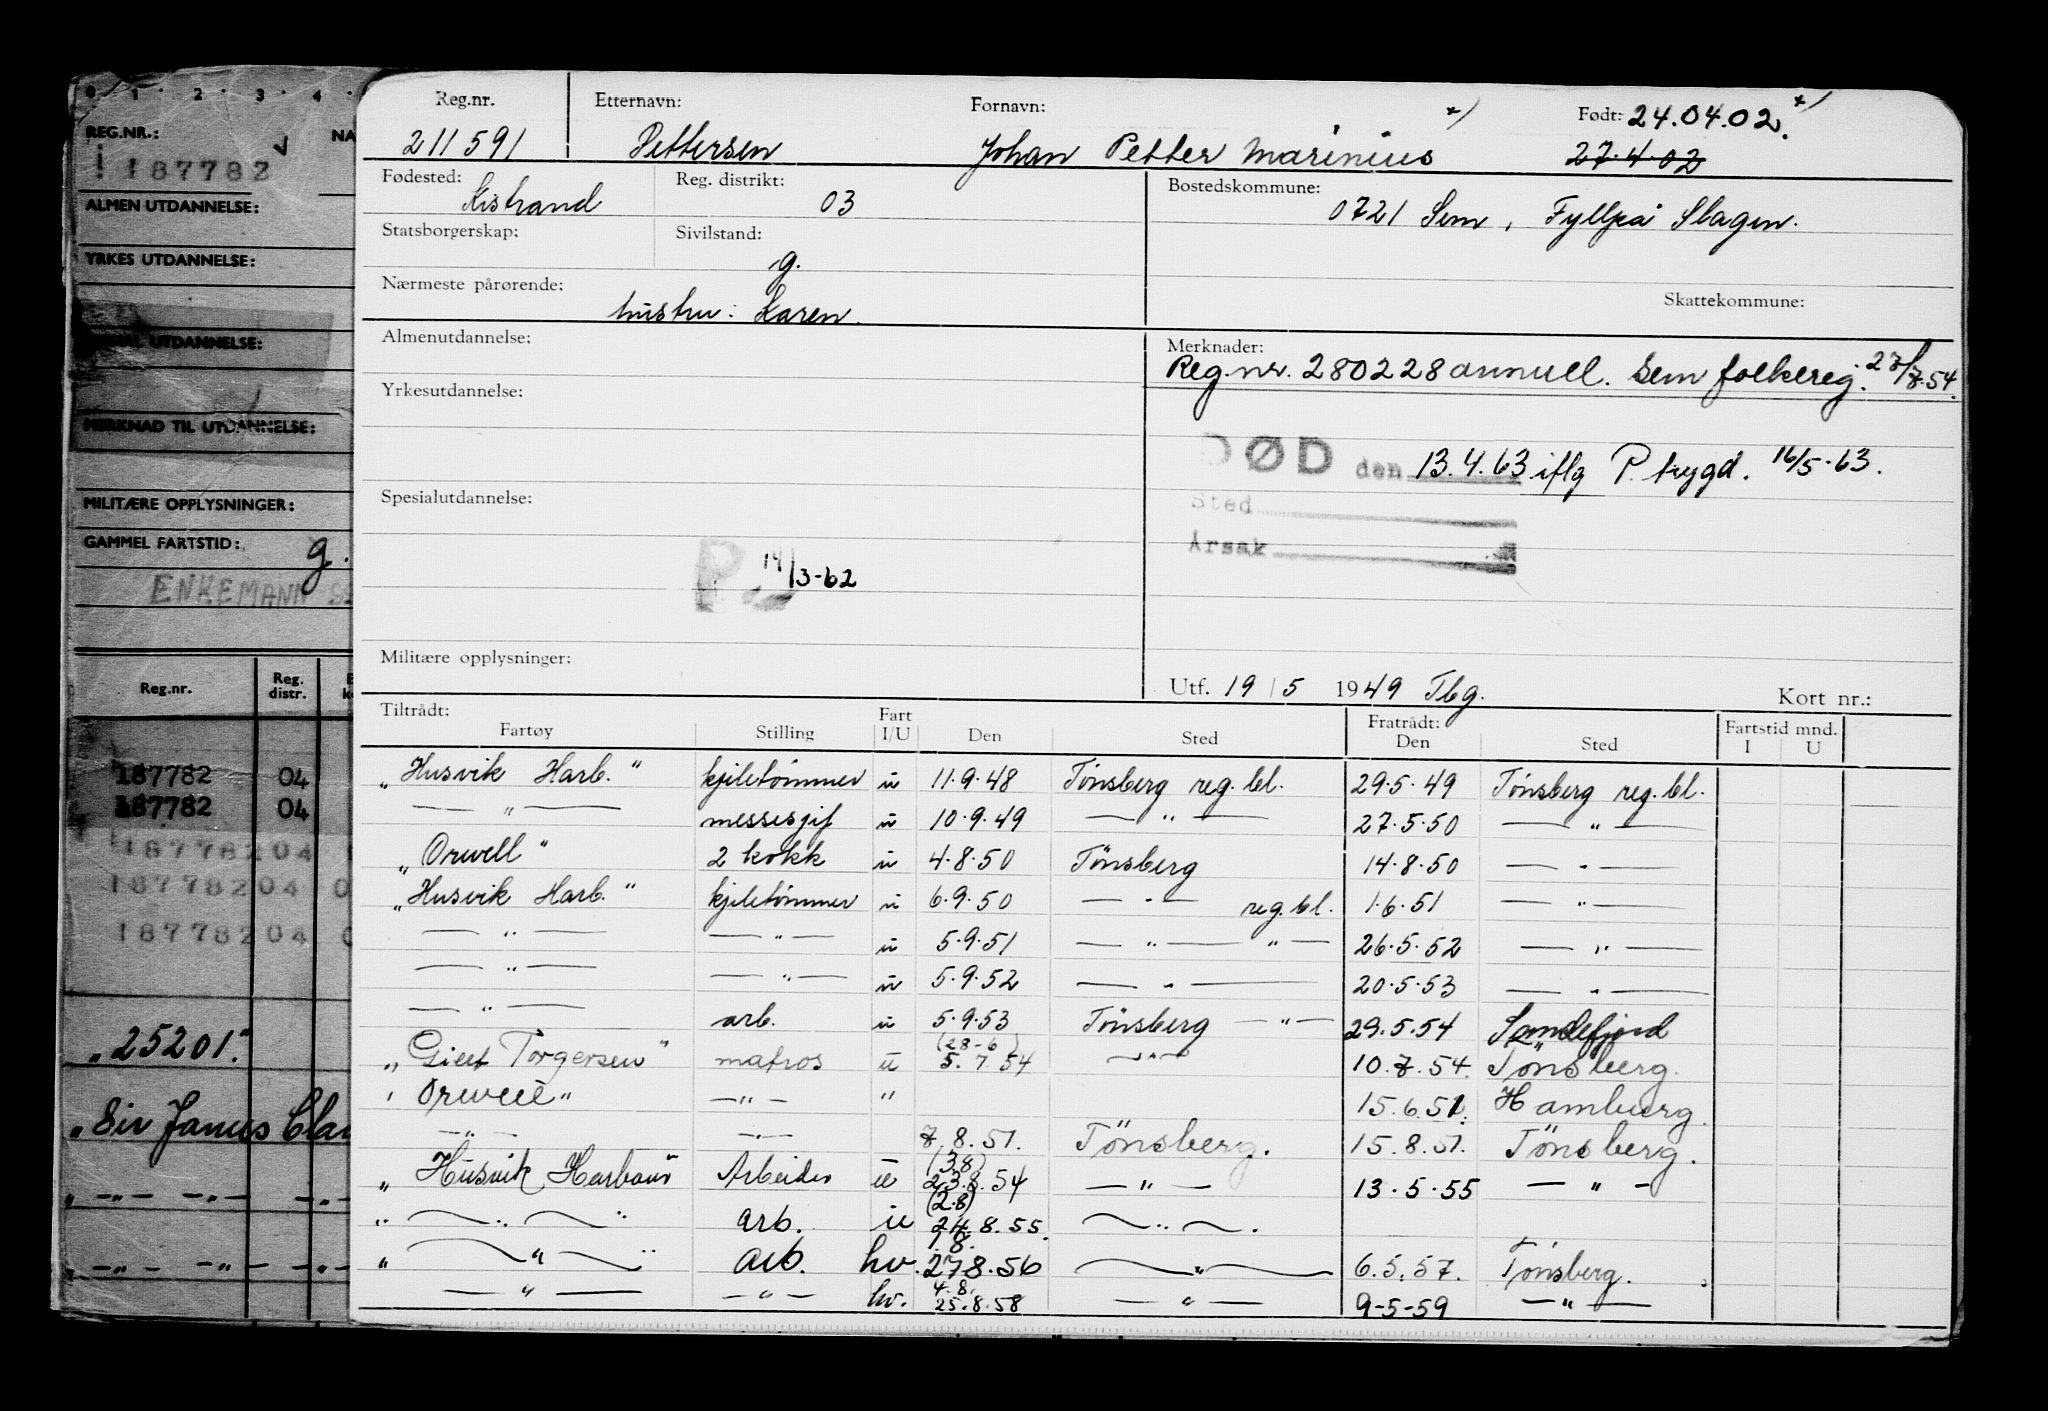 0 1 2 3 4
REG.NR.: NA
187782
ALMEN UTDANNELSE:
YRKES UTDANNELSE:
UTDANNELSE:
MERKNAD TIL UTDANNELSE:
MILITÆRE OPPLYSNINGER:
GAMMEL FARTSTID: g.
ENKEMANN
Reg.nr. Reg. distr.
187782 04
187782 04
187782 04
187782 04
187782 04
"25201".
"Sir James Cla
" -"- -"- -"-
" -"- -"- -"-
Reg.nr. Etternavn: Fornavn: x) Født: 24.04.02. x)
211591 Pettersen Johan Petter Marinius 27.4.02
Fødested: Reg. distrikt: Bostedskommune:
Kistrand 03 0721 Sem, Fyllpå Slagen.
Statsborgerskap: Sivilstand:
g.
Nærmeste pårørende: Skattekommune:
hustru: Karen.
Almenutdannelse: Merknader:
Reg.nr. 280228 annull. Sem folkereg. 27/7.54.
Yrkesutdannelse:
DØD den 13.4.63 iflg P.trygd. 16/5.63.
Spesialutdannelse: Sted
Årsak
P. 14/3-62
Militære opplysninger:
Utf. 19/5 1949 Tbg. Kort nr.:
Tiltrådt: Fart Fratrådt: Fartstid mnd.
Fartøy Stilling I/U Den Sted Den Sted I U
"Husvik Harb." kjeletømmer u 11.9.48 Tønsberg reg.bl. 29.5.49 Tønsberg reg.bl.
—"— messegif u 10.9.49 —"— 27.5.50 —"—
"Orwell" 2 kokk u 4.8.50 Tønsberg 14.8.50 —"—
"Husvik Harb." kjeletømmer u 6.9.50 —"— reg.bl. 1.6.51 —"—
—"— —"— u 5.9.51 —"— "— 26.5.52 —"—
—"— —"— u 5.9.52 —"— 20.5.53 —"—
—"— arb. u 5.9.53 Tønsberg —"— 29.5.54 Sandefjord
"Giert Torgersen" matros u (28-6) 5.7.54 —"— 10.7.54. Tønsberg.
"Orwell" —"— " 15.6.51. Hamburg.
—"— —"— 7.8.51. Tønsberg. 15.8.51. Tønsberg.
" Husvik Harbour Arbeider u (3.8) 23.8.54 —"— 13.5.55 —"—
" —"— arb. u (2.8) 24.8.55. —"—.
" —"— arb. hv. 1.8. 27.8.56 —"— 6.5.57. Tønsberg.
—"— —"— hv. 4.8. 25.8.58 —"— 9-5-59 —"—